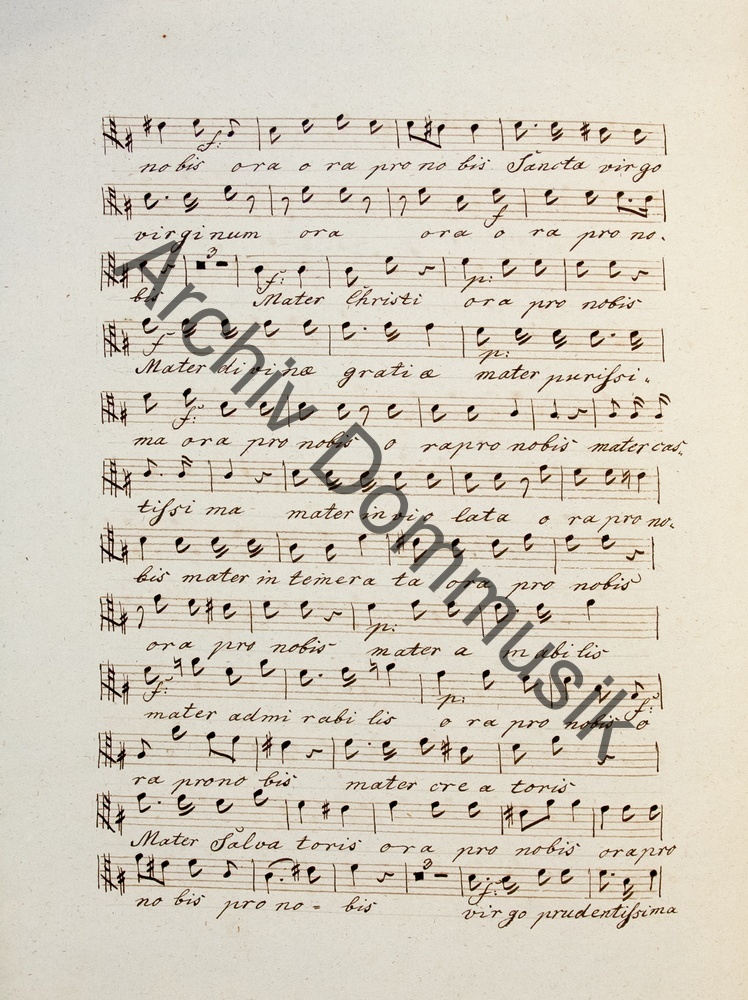 no bis ora o ra pro no bis Sancta virgo
virginum ora ora o ra pro no.
bis Mater Christi ora pro nobis
Mater divinæ gratiæ mater purissi-
ma ora pro nobis o ra pro nobis mater cas-
tissi ma mater in vio lata o ra pro no-
bis mater in temera ta ora pro nobis
ora pro nobis mater a mabilis
mater admi rabi lis o ra pro nobis o
ra pro no bis mater cre a toris
Mater Salva toris ora pro nobis ora pro
no bis pro no - bis virgo prudentissima
Archiv Dommusik